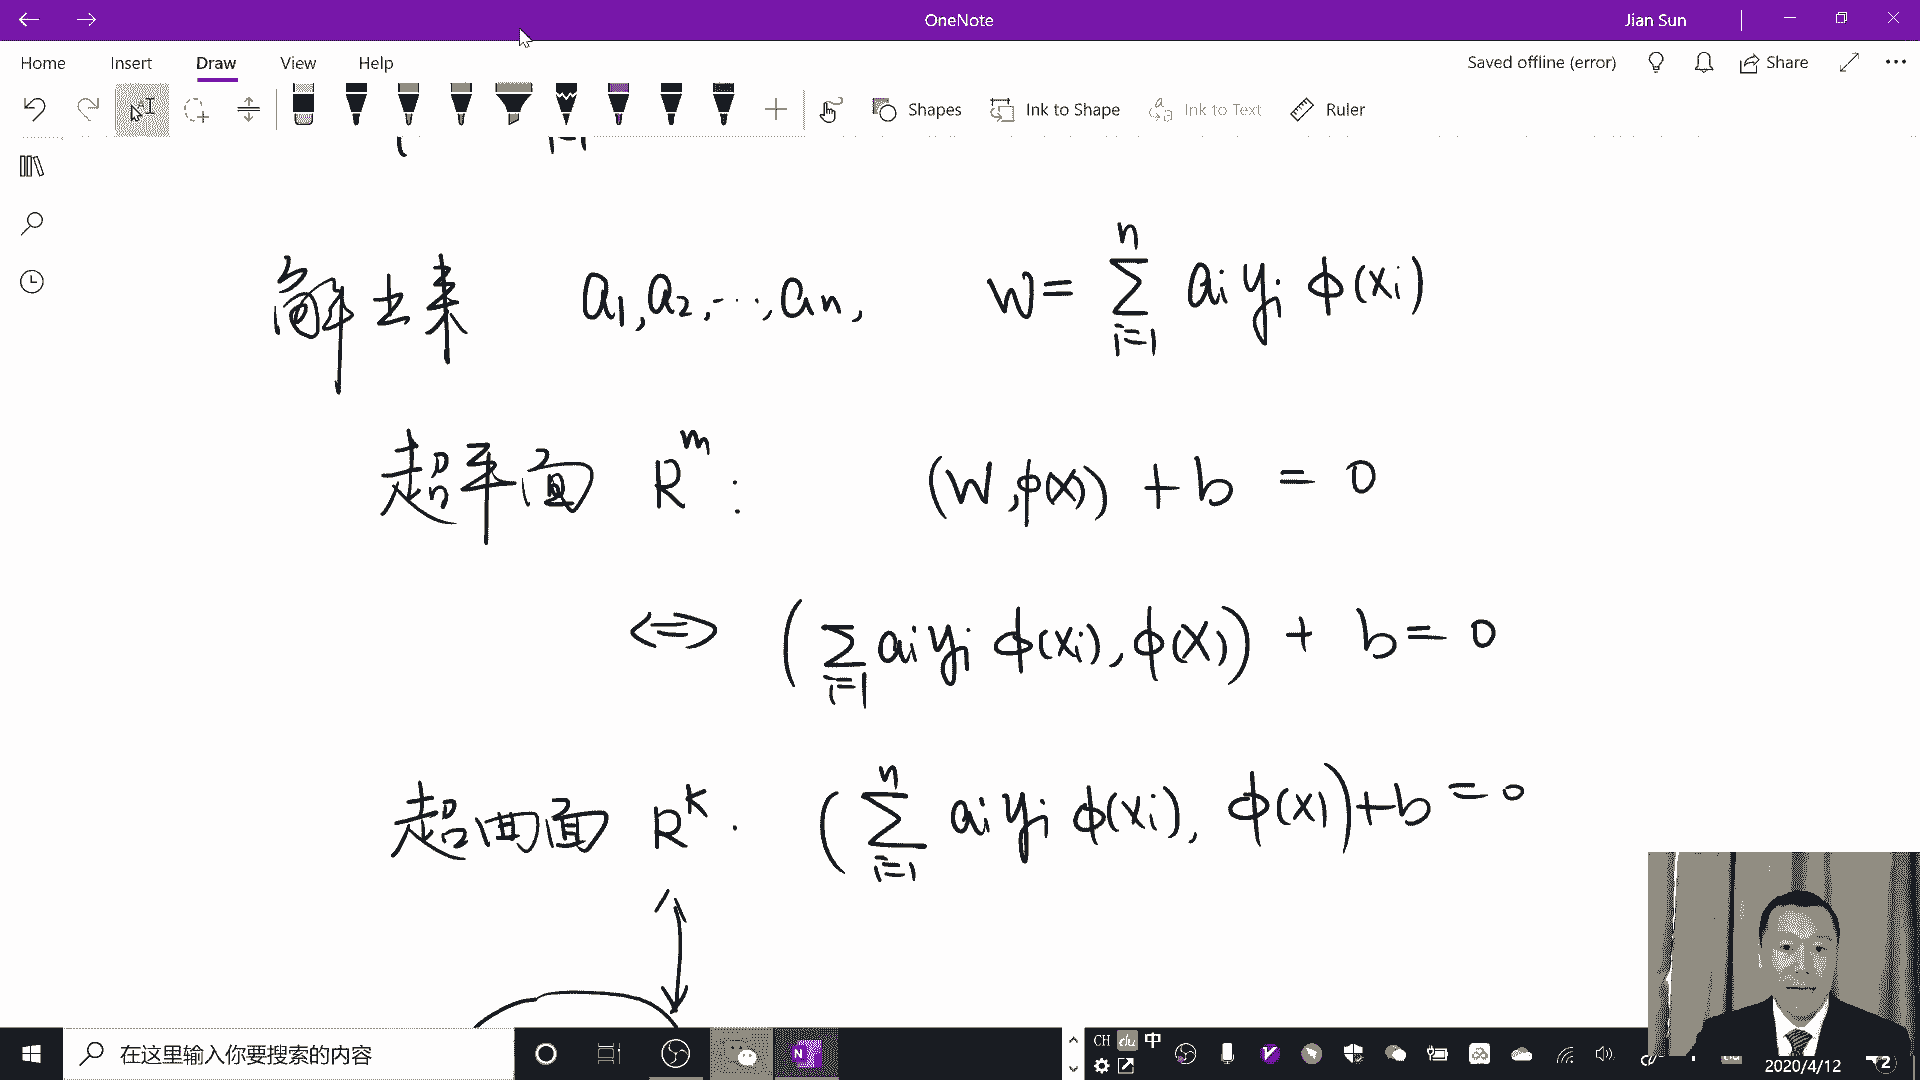 OneNote
Jian Sun
Home Insert Draw View Help
Saved offline (error) Share
Shapes Ink to Shape Ink to Text Ruler
i=1
解出来 a₁,a₂,⋯,aₙ, w = ∑ᵢ₌₁ⁿ aᵢyᵢ ϕ(xᵢ)
超平面 Rᵐ: (w,ϕ(x)) + b = 0
⇔ (∑ᵢ₌₁ aᵢyᵢ ϕ(xᵢ), ϕ(x)) + b = 0
超曲面 Rᴷ. (∑ᵢ₌₁ⁿ aᵢyᵢ ϕ(xᵢ), ϕ(x)) + b = 0
在这里输入你要搜索的内容
CH du 中
2020/4/12
2